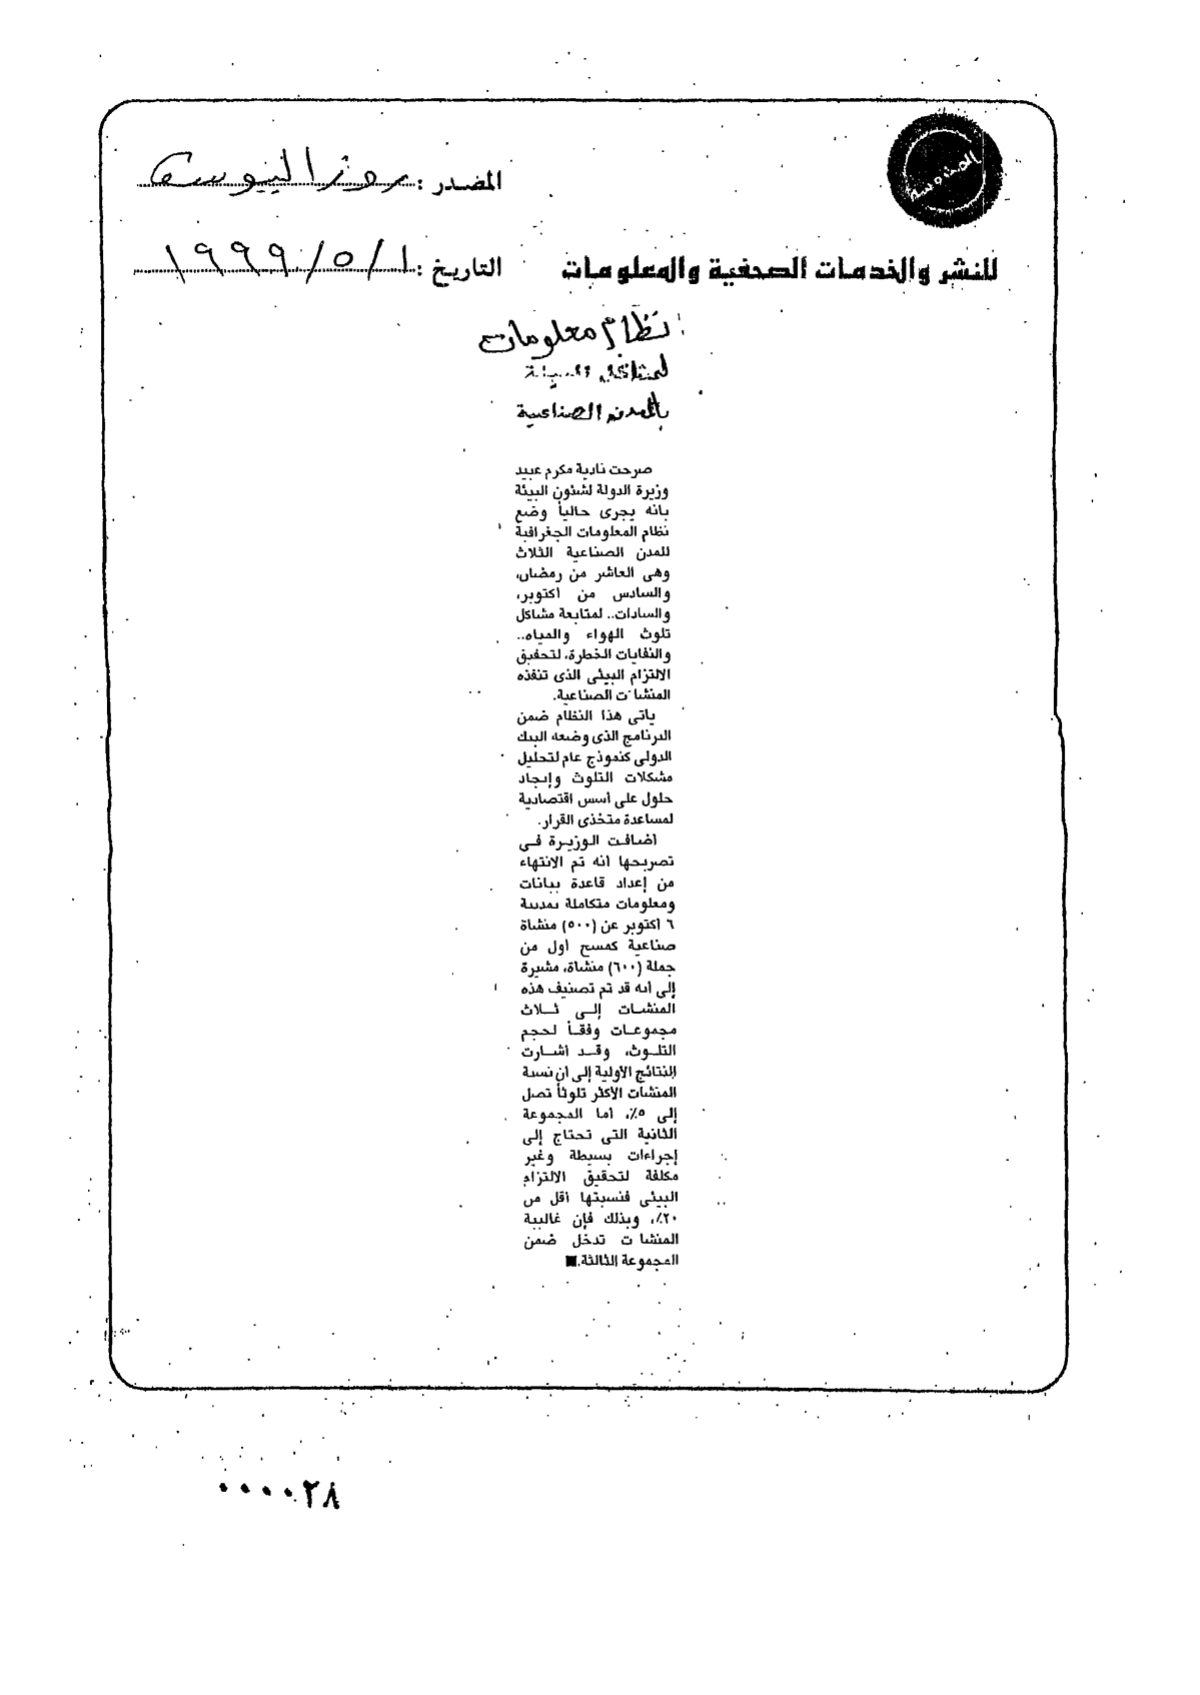 المصدر : روز اليوسف
للنشر والخدمات الصحفية والمعلومات
التاريخ : ١ / ٥ / ١٩٩٩
نظام معلومات
لمشاكل البيئة
بالمدن الصناعية
صرحت نادية مكرم عبيد
وزيرة الدولة لشئون البيئة
بانه يجرى حالياً وضع
نظام المعلومات الجغرافية
للمدن الصناعية الثلاث
وهى العاشر من رمضان،
والسادس من اكتوبر،
والسادات.. لمتابعة مشاكل
تلوث الهواء والمياه..
والنفايات الخطرة، لتحقيق
الالتزام البيئى الذى تنفذه
المنشات الصناعية.
ياتى هذا النظام ضمن
البرنامج الذى وضعه البنك
الدولى كنموذج عام لتحليل
مشكلات التلوث وإيجاد
حلول على أسس اقتصادية
لمساعدة متخذى القرار.
اضافت الوزيرة فى
تصريحها انه تم الانتهاء
من إعداد قاعدة بيانات
ومعلومات متكاملة بمدينة
٦ اكتوبر عن (٥٠٠) منشاة
صناعية كمسح اول من
جملة (٦٠٠) منشاة، مشيرة
إلى انه قد تم تصنيف هذه
المنشات إلى ثلاث
مجموعات وفقاً لحجم
التلوث، وقد اشارت
النتائج الاولية إلى ان نسبة
المنشات الاكثر تلوثاً تصل
إلى ٥٪، اما المجموعة
الثانية التى تحتاج إلى
إجراءات بسيطة وغير
مكلفة لتحقيق الالتزام
البيئى فنسبتها اقل من
٢٠٪، وبذلك فإن غالبية
المنشات تدخل ضمن
المجموعة الثالثة.■
٠٠٠٠٢٨